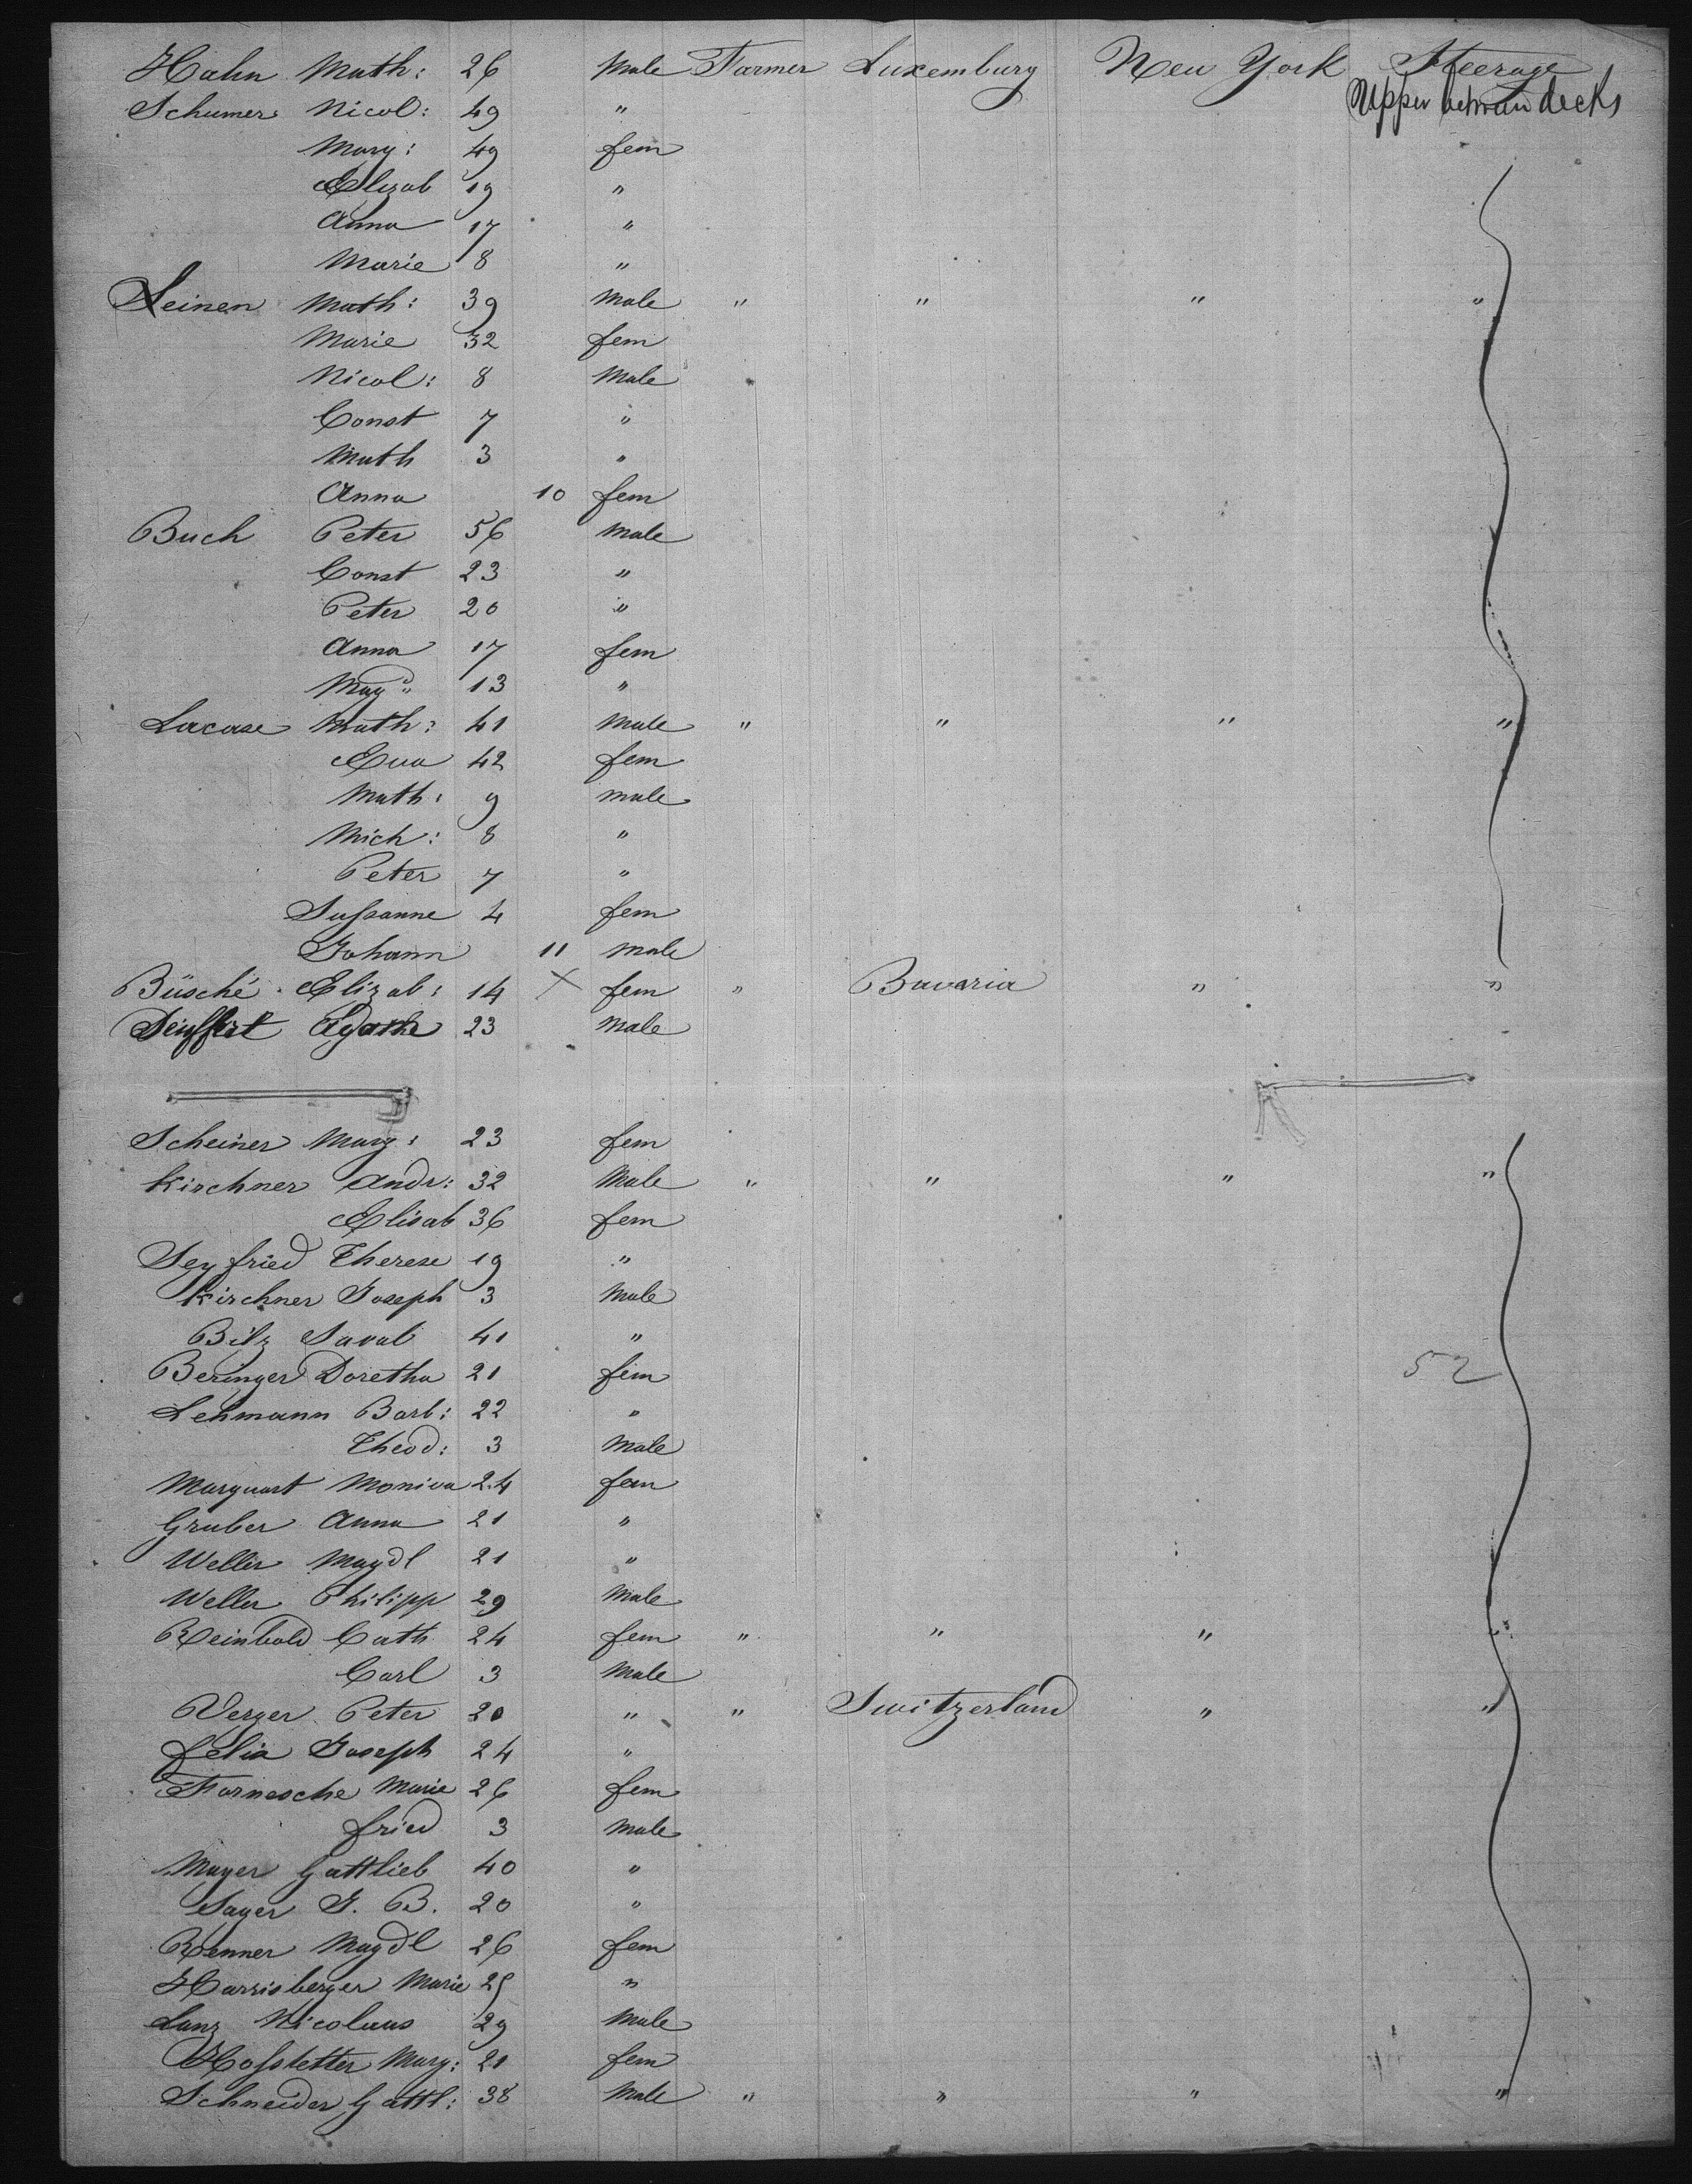 Hahn Math: 26 Male Farmer Luxemburg New York Steerage
Upper between decks
Schumer Nicol: 49 "
Marg: 49 fem
Elizab 19 "
Anna 17 "
Marie 8 "
Leinen Math: 39 Male " " " "
Marie 32 fem
Nicol: 8 Male
Const 7 "
Math 3 "
Anna 10 fem
Buch Peter 56 Male
Const 23 "
Peter 20 "
Anna 17 fem
Magd 13 "
Lacase Math: 41 Male " " " "
Eva 42 fem
Math: 9 male
Mich: 8 "
Peter 7 "
Sussanne 4 fem
Johann 11 male
Büsché Elizab: 14 X fem " Bavaria " "
23 Male
Scheiner Marg: 23 fem
Kirchner Andr: 32 Male " " " "
Elisab 36 fem
Seyfried Therese 19 "
Kirchner Joseph 3 Male
Bilz 41 "
Beringer Doretha 21 fem 52
Lehmann Barb: 22 "
Theod: 3 Male
Marquart Monica 24 fem
Gruber Anna 21 "
Weller Magdl 21 "
Weller Philipp 29 Male
Reinbold Cath 24 fem " " " "
Carl 3 Male
Verger Peter 20 " " Switzerland " "
Felix Joseph 24 "
Farnesche Marie 26 fem
fried 3 Male
Mayer Gottlieb 40 "
Sayer J. B. 20 "
Renner Magdl 26 fem
Harrisberger Marie 25 "
Lanz Nicolaus 29 Male
Hofstetter Marg: 21 fem
Schneider Gottl: 38 Male " " " "